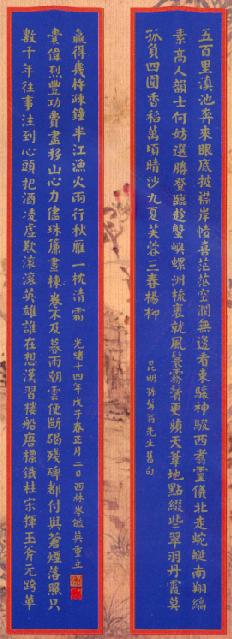 五百里滇池奔來眼底披襟岸幘喜茫茫空闊無邊看東驤神駿西翥靈儀北走蜿蜒南翔縞
素高人韻士何妨選勝登臨趁蟹嶼螺洲梳裹就風鬟霧鬢更蘋天葦地點綴些翠羽丹霞莫
孤負四圍香稻萬頃晴沙九夏芙蓉三春楊柳
昆明孫髯翁先生舊句
數千年往事注到心頭把酒凌虛歎滾滾英雄誰在想漢習樓船唐標鐵柱宋揮玉斧元跨革
囊偉烈豐功費盡移山心力儘珠簾畫棟卷不及暮雨朝雲便斷碣殘碑都付與蒼煙落照只
贏得幾杵疎鐘半江漁火兩行秋雁一枕清霜 光緒十四年戊子春正月二日西林岑毓英重立